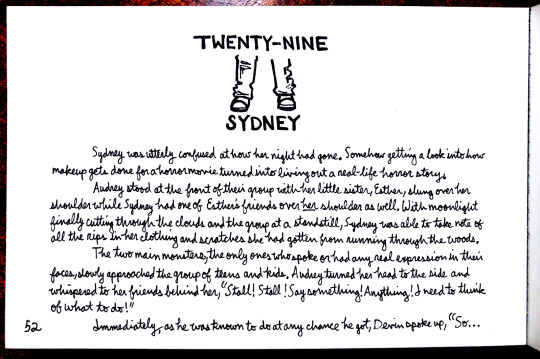 TWENTY-NINE
SYDNEY
Sydney was utterly confused at how her night had gone. Somehow getting a look into how
makeup gets done for a horror movie turned into living out a real-life horror story.
Audrey stood at the front of their group with her little sister, Esther, slung over her
shoulder while Sydney had one of Esther's friends over her shoulder as well. With moonlight
finally cutting through the clouds and the group at a standstill, Sydney was able to take note of
all the rips in her clothing and scratches she had gotten from running through the woods.
The two main monsters, the only ones who spoke or had any real expression in their
faces, slowly approached the group of teens and kids. Audrey turned her head to the side and
whispered to her friends behind her, "Stall! Stall! Say something! Anything! I need to think
of what to do!"
Immediately, as he was known to do at any chance he got, Devin spoke up, "So...
52